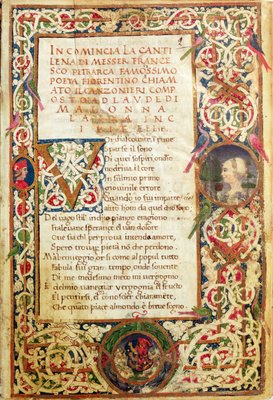 IN COMINCIA LA CANTI
LENA DI MESSER FRANCE
SCO PITRARCA FAMOSSIMO
POETA FIORENTINO CHIAM
ATO IL CANZONIERI COMP
OSTO A D LAVDE DI
MADONNA
LAVRA INC
sparse il sono
Di quei sospiri ondio
nodriva il core
In sulmio primo
iovinile errore
Quando io fui imparte
altro hom da quel chio sono
Del vago stile inchio piango et ragiono
Fralevane speranze el van dolore
Que sia chi per prova intenda amore
Spero trovar pieta no che perdono
Ma ben veggio or si come al popul tutto
Fabula fui gran tempo onde sovente
Di me medesimo meco mi vergogno
vergogna el fructo
El pentirsi el conoscer chiaramente
Che quato piace almondo è breve sogno